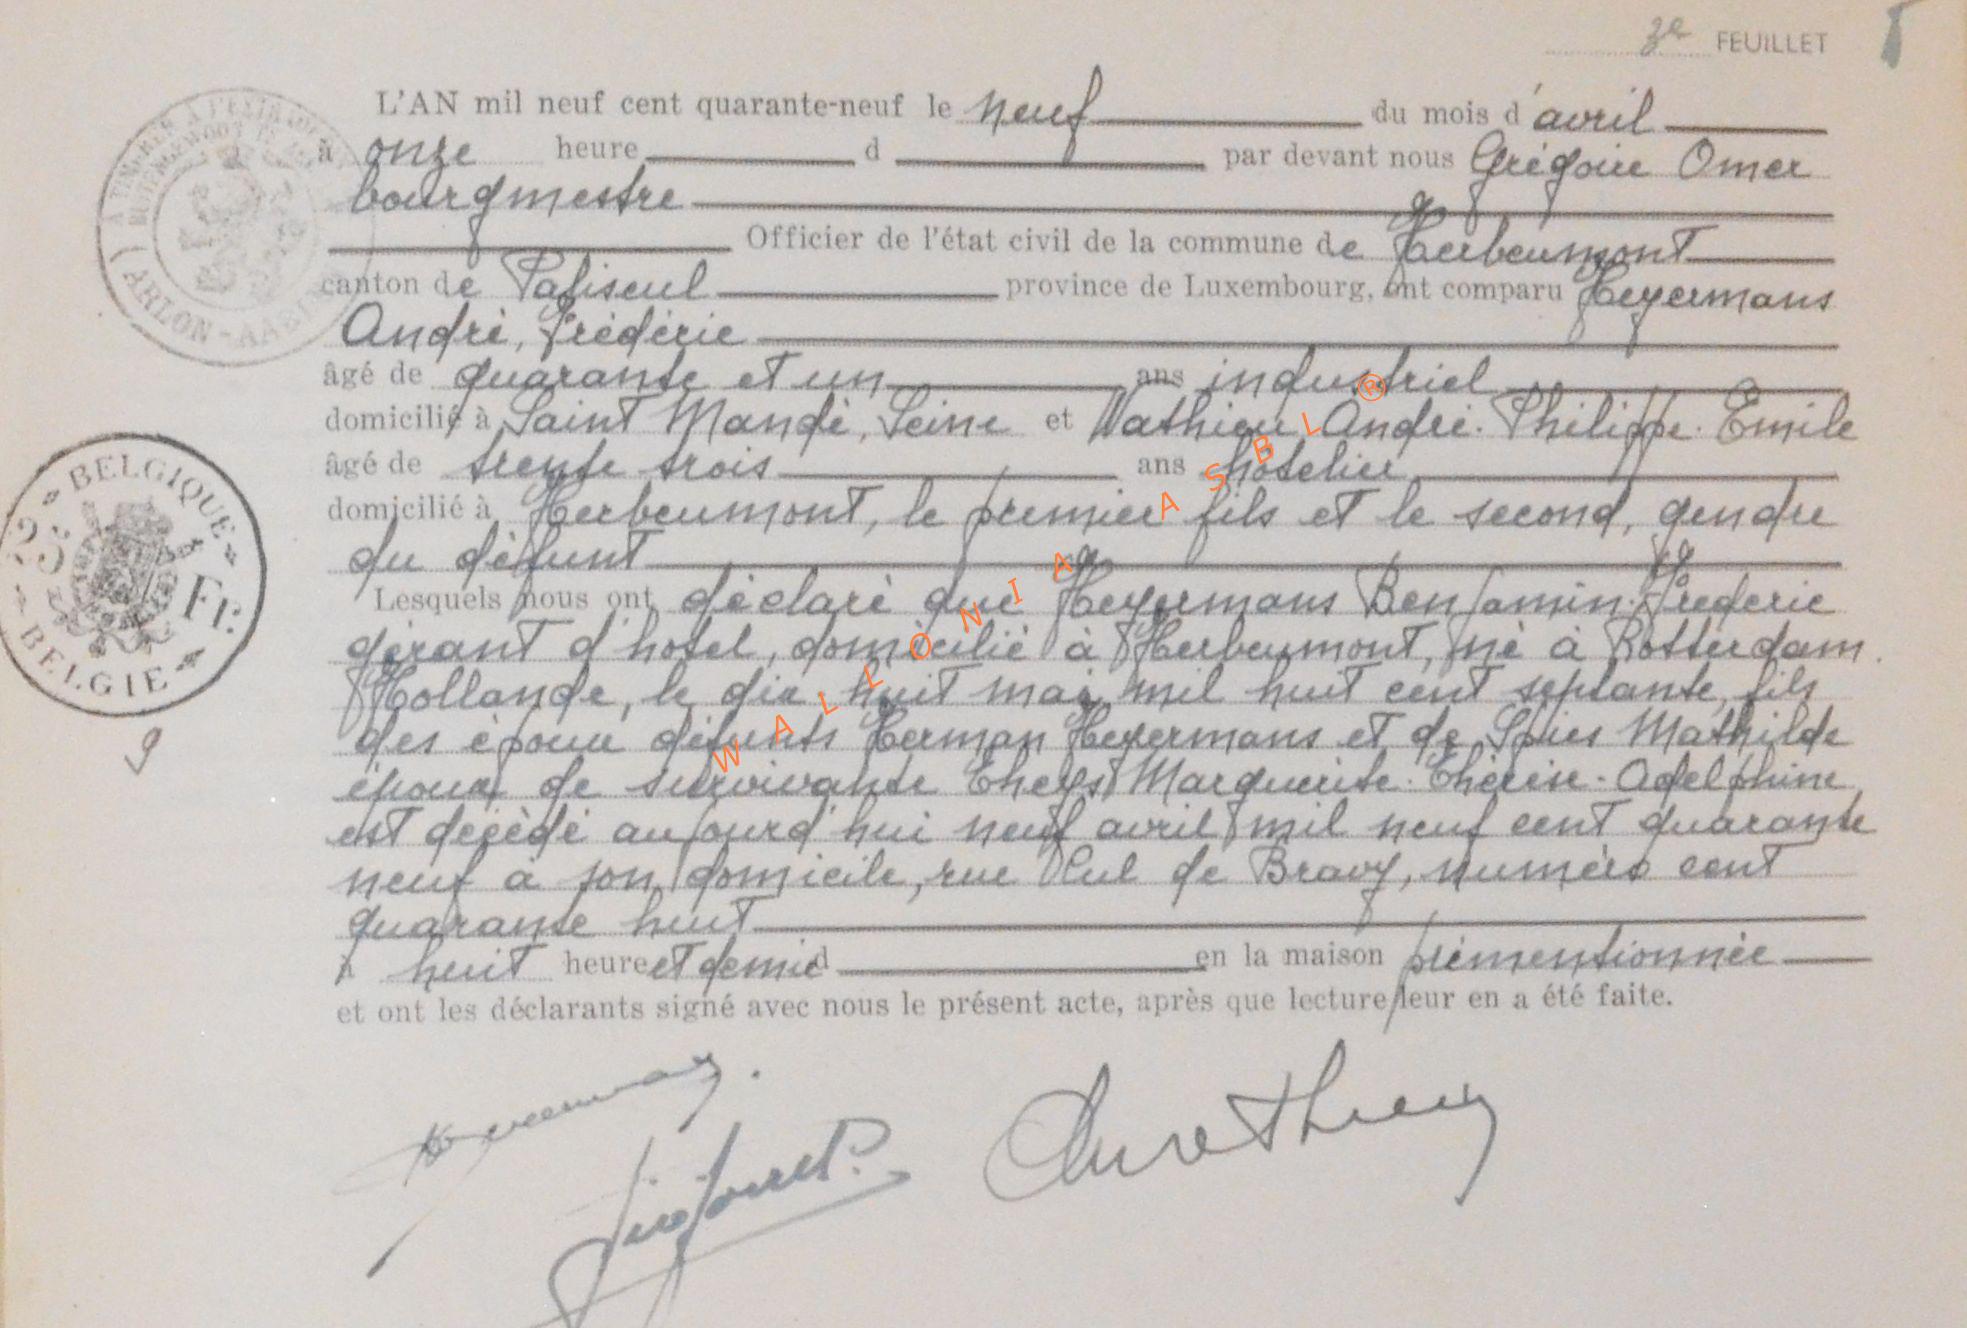 3e FEUILLET
L'AN mil neuf cent quarante-neuf le neuf du mois d'avril
à onze heure d par devant nous Grégoire Omer
bourgmestre
Officier de l'état civil de la commune de Herbeumont
canton de Paliseul province de Luxembourg, ont comparu Heyermans
André, Frédéric
âgé de quarante et un ans industriel
domicilié à Saint Mandé, Seine et Mathieu André. Philippe. Emile
âgé de trente trois ans hôtelier
domicilié à Herbeumont, le premier fils et le second, gendre
du défunt
Lesquels nous ont déclaré que Heyermans Benjamin. Frederic
gérant d'hotel, domicilié à Herbeumont, né à Rotterdam
Hollande, le dix huit mai mil huit cent septante, fils
des époux défunts Herman Heyermans et de Spies Mathilde
époux de survivante Theys Marguerite. Thérèse. Adelphine
est décédé aujourd'hui neuf avril mil neuf cent quarante
neuf à son domicile, rue Cul de Bravy, numéro cent
quarante huit
à huit heure et demie d en la maison prémentionnée
et ont les déclarants signé avec nous le présent acte, après que lecture leur en a été faite.
BELGIQUE
25 Fr.
BELGIE
9
ARLON - AARLEN
WALLONIA ASBL ®